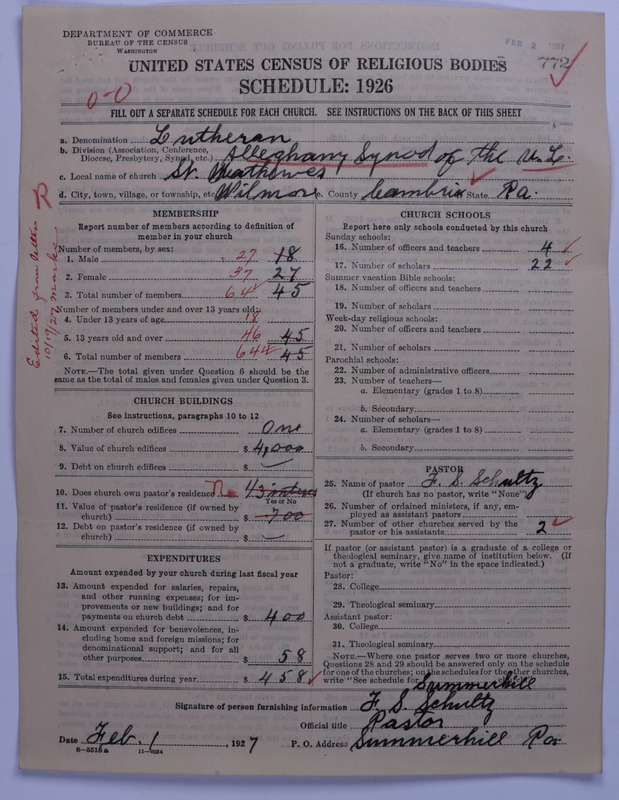 DEPARTMENT OF COMMERCE
BUREAU OF THE CENSUS
WASHINGTON
FEB 2 1927
772
UNITED STATES CENSUS OF RELIGIOUS BODIES
SCHEDULE: 1926
0-0
FILL OUT A SEPARATE SCHEDULE FOR EACH CHURCH. SEE INSTRUCTIONS ON THE BACK OF THIS SHEET
a. Denomination Lutheran
b. Division (Association, Conference, Diocese, Presbytery, Synod, etc.) Alleghany Synod of the U.L.
c. Local name of church St. Mathews
d. City, town, village, or township, etc. Wilmore e. County Cambria State Pa.
Edited from letter
10/19/27
MEMBERSHIP
Report number of members according to definition of
member in your church
Number of members, by sex:
1. Male 27 18
2. Female 37 27
3. Total number of members 64 45
Number of members under and over 13 years old:
4. Under 13 years of age 18
5. 13 years old and over 46 45
6. Total number of members 64 45
NOTE.—The total given under Question 6 should be the
same as the total of males and females given under Question 3.
CHURCH BUILDINGS
See instructions, paragraphs 10 to 12
7. Number of church edifices One
8. Value of church edifices $ 4,000
9. Debt on church edifices $
10. Does church own pastor's residence? No 1/3 interest
Yes or No
11. Value of pastor's residence (if owned by
church) $ 700
12. Debt on pastor's residence (if owned by
church) $
EXPENDITURES
Amount expended by your church during last fiscal year
13. Amount expended for salaries, repairs,
and other running expenses; for im-
provements or new buildings; and for
payments on church debt $ 400
14. Amount expended for benevolences, in-
cluding home and foreign missions; for
denominational support; and for all
other purposes $ 58
15. Total expenditures during year $ 458
CHURCH SCHOOLS
Report here only schools conducted by this church
Sunday schools:
16. Number of officers and teachers 4
17. Number of scholars 22
Summer vacation Bible schools:
18. Number of officers and teachers
19. Number of scholars
Week-day religious schools:
20. Number of officers and teachers
21. Number of scholars
Parochial schools:
22. Number of administrative officers
23. Number of teachers—
a. Elementary (grades 1 to 8)
b. Secondary
24. Number of scholars—
a. Elementary (grades 1 to 8)
b. Secondary
PASTOR
25. Name of pastor F. S. Schultz
(If church has no pastor, write "None")
26. Number of ordained ministers, if any, em-
ployed as assistant pastors
27. Number of other churches served by the
pastor or his assistants 2
If pastor (or assistant pastor) is a graduate of a college or
theological seminary, give name of institution below. (If
not a graduate, write "No" in the space indicated.)
Pastor:
28. College
29. Theological seminary
Assistant pastor:
30. College
31. Theological seminary
NOTE.—Where one pastor serves two or more churches,
Questions 28 and 29 should be answered only on the schedule
for one of the churches; on the schedules for the other churches,
write "See schedule for Summerhill
Signature of person furnishing information F. S. Schultz
Official title Pastor
Date Feb. 1, 1927 P. O. Address Summerhill Pa
6-5518 a 11-9054